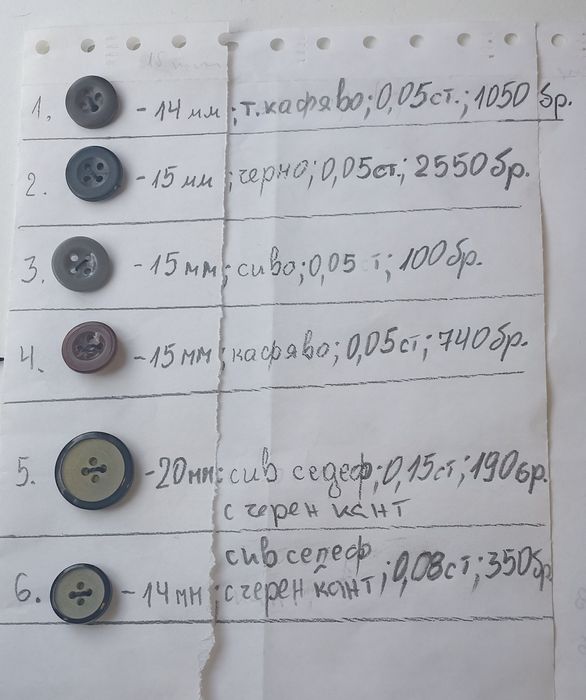 1. - 14 мм; т. кафяво; 0,05 ст.; 1050 бр.
2. - 15 мм; черно; 0,05 ст.; 2550 бр.
3. - 15 мм; сиво; 0,05 т; 100 бр.
4. - 15 мм; кафяво; 0,05 ст; 740 бр.
5. - 20 мм; сив седеф; 0,15 ст; 190 бр.
с черен кант
сив седеф
6. - 14 мм; с черен кант; 0,08 ст; 350 бр